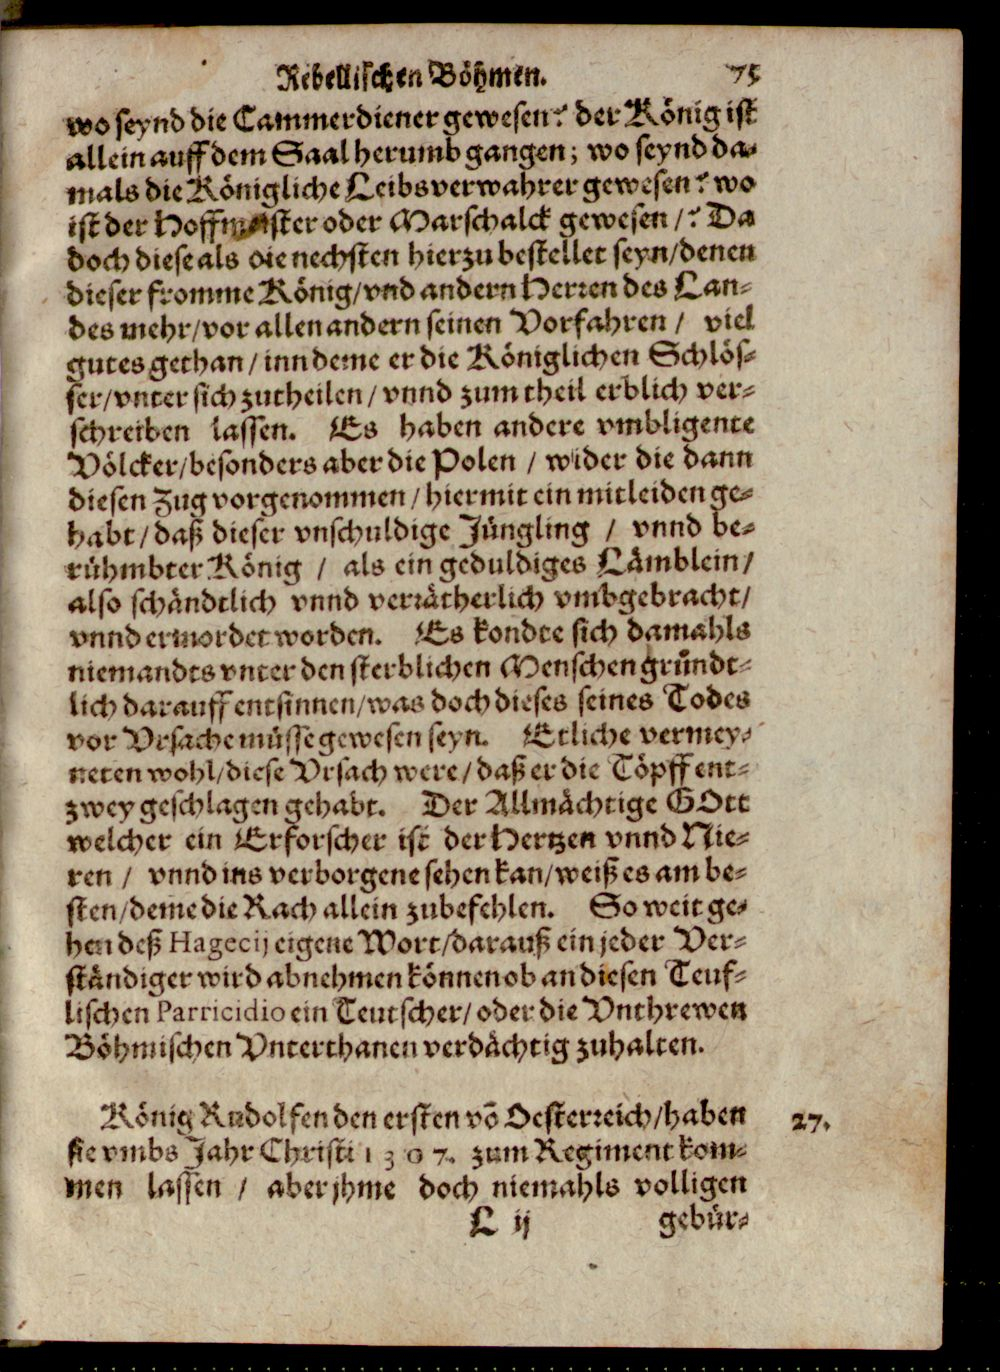 Rebellischen Böhmen. 75
wo seynd die Cammerdiener gewesen? der König ist
allein auff dem Saal herumb gangen; wo seynd da-
mals die Königliche Leibsverwahrer gewesen? wo
ist der Hoffmeister oder Marschalck gewesen /? Da
doch diese als die nechsten hierzu bestellet seyn/denen
dieser fromme König/vnd andern Herren des Lan-
des mehr/vor allen andern seinen Vorfahren / viel
gutes gethan / inn deme er die Königlichen Schlös-
ser/vnter sich zutheilen / vnnd zum theil erblich ver-
schreiben lassen. Es haben andere vmbligente
Völcker/besonders aber die Polen / wider die dann
diesen Zug vorgenommen / hiermit ein mitleiden ge-
habt / daß dieser vnschuldige Jüngling / vnnd be-
rühmbter König / als ein geduldiges Lämblein /
also schändtlich vnnd verrätherlich vmbgebracht/
vnnd ermordet worden. Es kondte sich damahls
niemandts vnter den sterblichen Menschen gründt-
lich darauff entsinnen/was doch dieses seines Todes
vor Vrsache müsse gewesen seyn. Etliche vermey-
neten wohl/diese Vrsach were / daß er die Töpff ent-
zwey geschlagen gehabt. Der Allmächtige GOtt
welcher ein Erforscher ist der Hertzen vnnd Nie-
ren / vnnd ins verborgene sehen kan/weiß es am be-
sten/deme die Rach allein zubefehlen. So weit ge-
hen deß Hagecij eigene Wort/darauß ein jeder Ver-
ständiger wird abnehmen können ob an diesen Teuf-
lischen Parricidio ein Teutscher/ oder die Vnthrewen
Böhmischen Vnterthanen verdächtig zuhalten.
König Rudolfen den ersten võ Oesterreich/haben 27.
sie vmbs Jahr Christi 1307. zum Regiment kom-
men lassen / aber jhme doch niemahls volligen
L ij gebür-